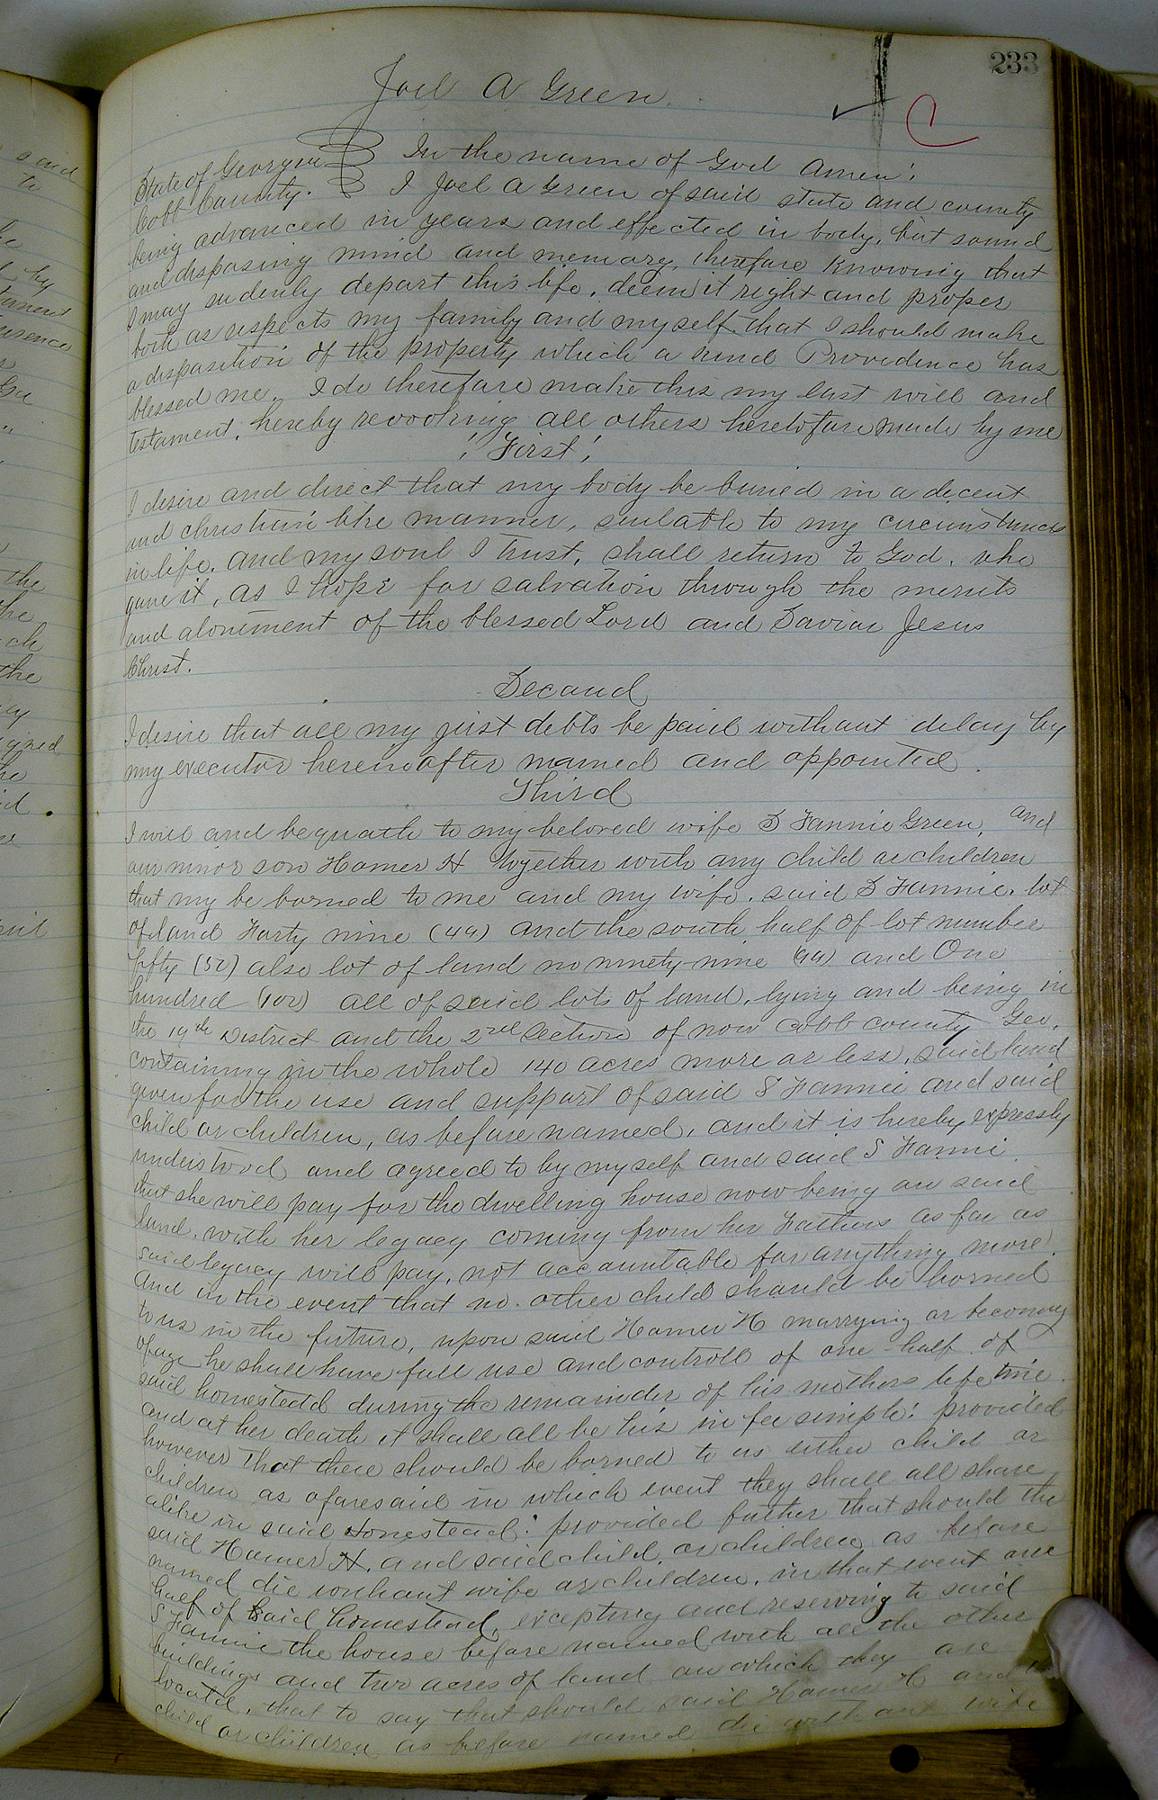 233
Joel A Green
State of Georgia In the name of God Amen!
Cobb County. I Joel A Green of said state and county
being advanced in years and effected in body, but sound
and disposing mind and memory, therefore knowing that
I may sudenly depart this life, deem it right and proper
both as respects my family and myself that I should make
a disposition of the property which a kind Providence has
blessed me. I do therefore make this my last will and
testament, hereby revooking all others heretofore made by me
"First"
I desire and direct that my body be buried in a decent
and christian like manner, suitable to my circumstances
in life, and my soul I trust, shall return to God, who
gave it, as I hope for salvation through the merits
and atonement of the blessed Lord and Savior Jesus
Christ.
Second
I desire that all my just debts be paid without delay by
my executor hereinafter named and appointed.
Third
I will and bequath to my beloved wife S Fannie Green, and
our minor son Homer H together with any child or children
that my be borned to me and my wife, said S Fannie, lot
of land Forty nine (49) and the south half of lot number
fifty (50) also lot of land no ninety-nine (99) and One
hundred (100) all of said lots of land, lying and being in
the 19th District and the 2nd Section of now Cobb county Geo,
containing in the whole 140 acres more or less, said land
given for the use and support of said S Fannie and said
child or children, as before named, and it is hereby expressly
understood and agreed to by myself and said S Fannie.
that she will pay for the dwelling house now being on said
land, with her legacy coming from her Fathers as far as
said legacy will pay, not accountable for anything more.
And in the event that no other child should be borned
to us in the future, upon said Homer H marrying or becoming
of age he shall have full use and controll of one-half of
said homestead during the remainder of his mothers life time
and at her death it shall all be his in fee simple: provided
however that there should be borned to us either child or
children as aforesaid in which event they shall all share
alike in said Homestead: provided futher that should the
said Homer H. and said child or children as before
named die without wife or children, in that event one
half of said homestead, excepting and reserving to said
S Fannie the house before named with all the other
buildings and two acres of land on which they are
located, that to say that should said Homer H and
child or children as before named die without wife